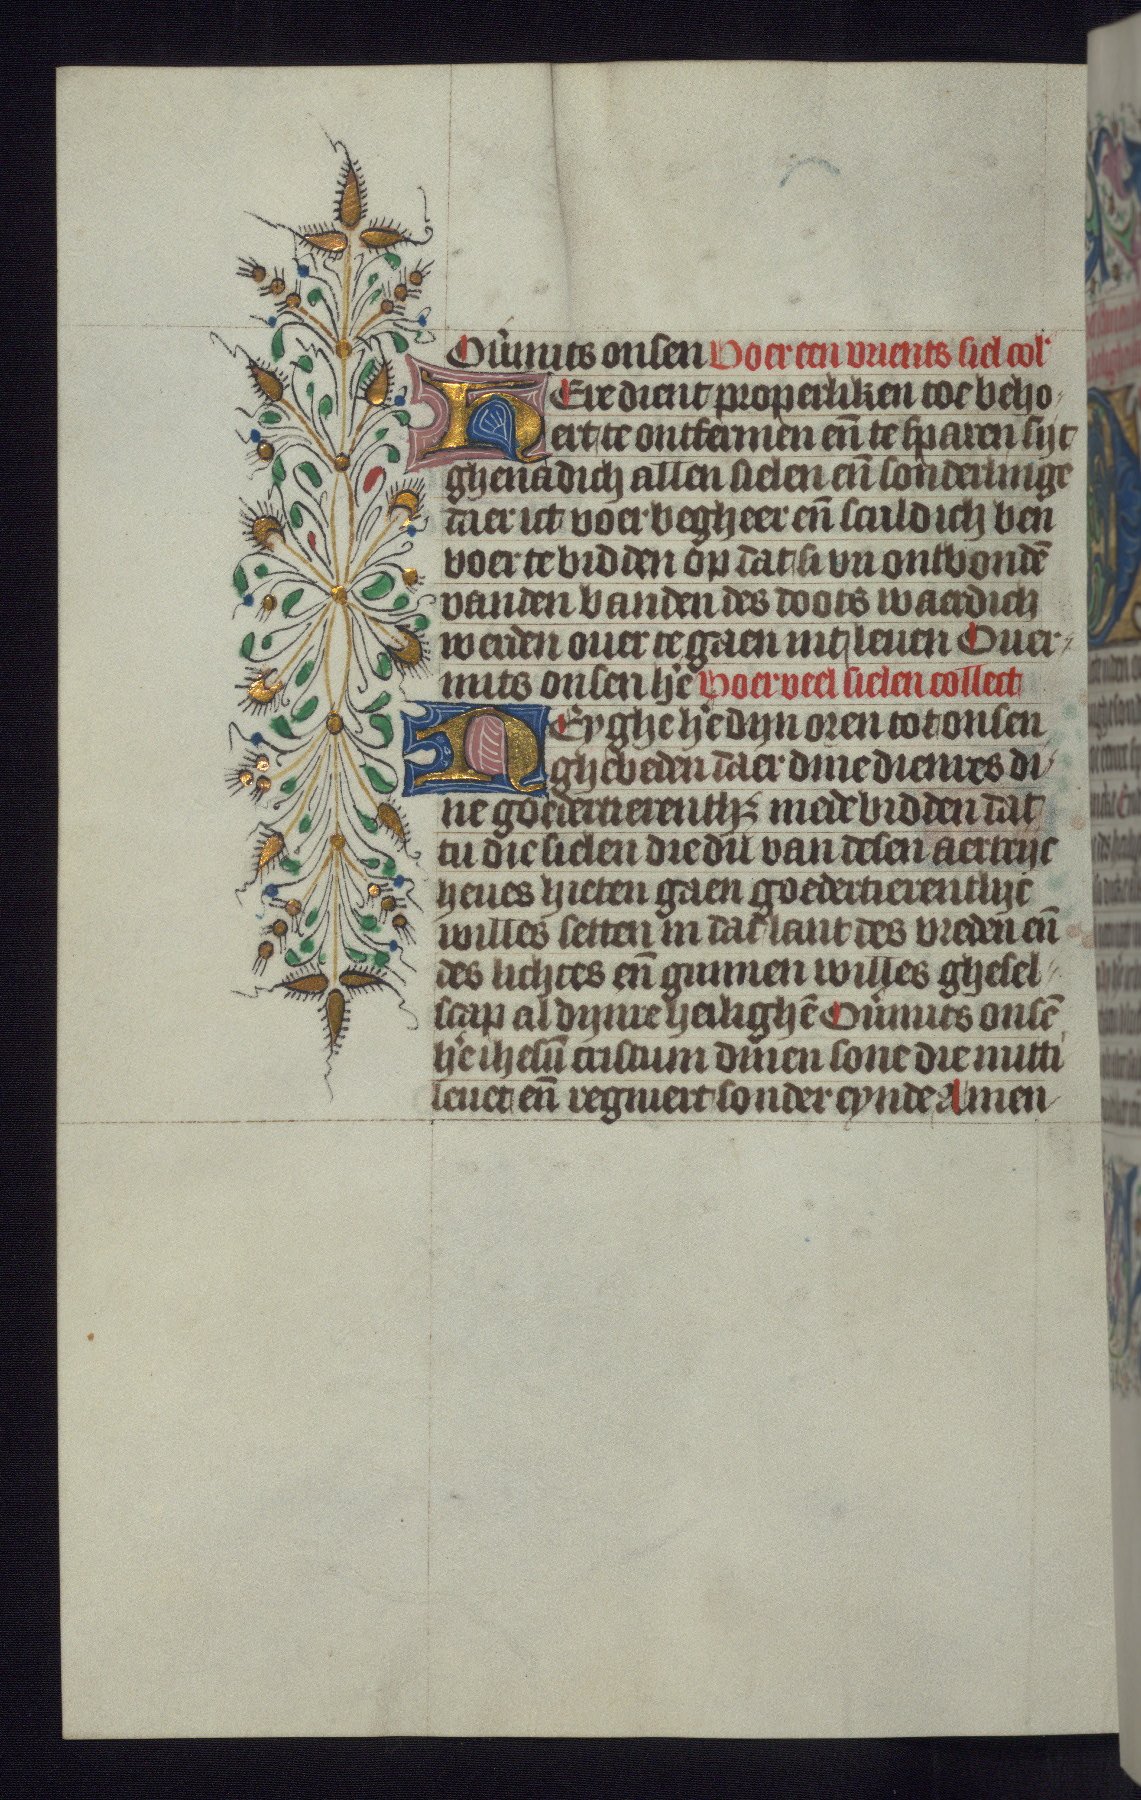 Ov̄mits onsen Voer een vrients siel col
HEre dient properliken toe beho
ert te ontfermen en̄ te sparen sijt
ghenadich allen sielen en̄ sonderlinge
daer ict voer begheer en̄ sculdich ben
voer te bidden op dat si vn ontbondē
vanden banden des doots waerdich
werden ouer te gaen int leuen Ouer-
mits onsen hē Voer veel sielen collect
NEyghe hē dijn oren tot onsen
ghebeden daer dine dienres di
ne goedertierenth̄ mede bidden dat
tu die sielen die dū van desen aertrijc
heues hieten gaen goedertierenthijt
willes setten in dat lant des vreden en̄
des lichtes en̄ gunnen willes ghesel
scap al dijnre heilighē Ov̄mits onsē
hē ihesū cristum dinen sone die mitti
leuet en̄ regniert sonder eynde Amen